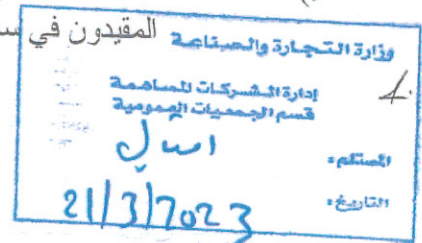 المقيدون في
وزارة التجارة والصناعة
إدارة الشركات المساهمة
قسم الجمعيات العمومية
المستلم:
التاريخ: 21/3/2023